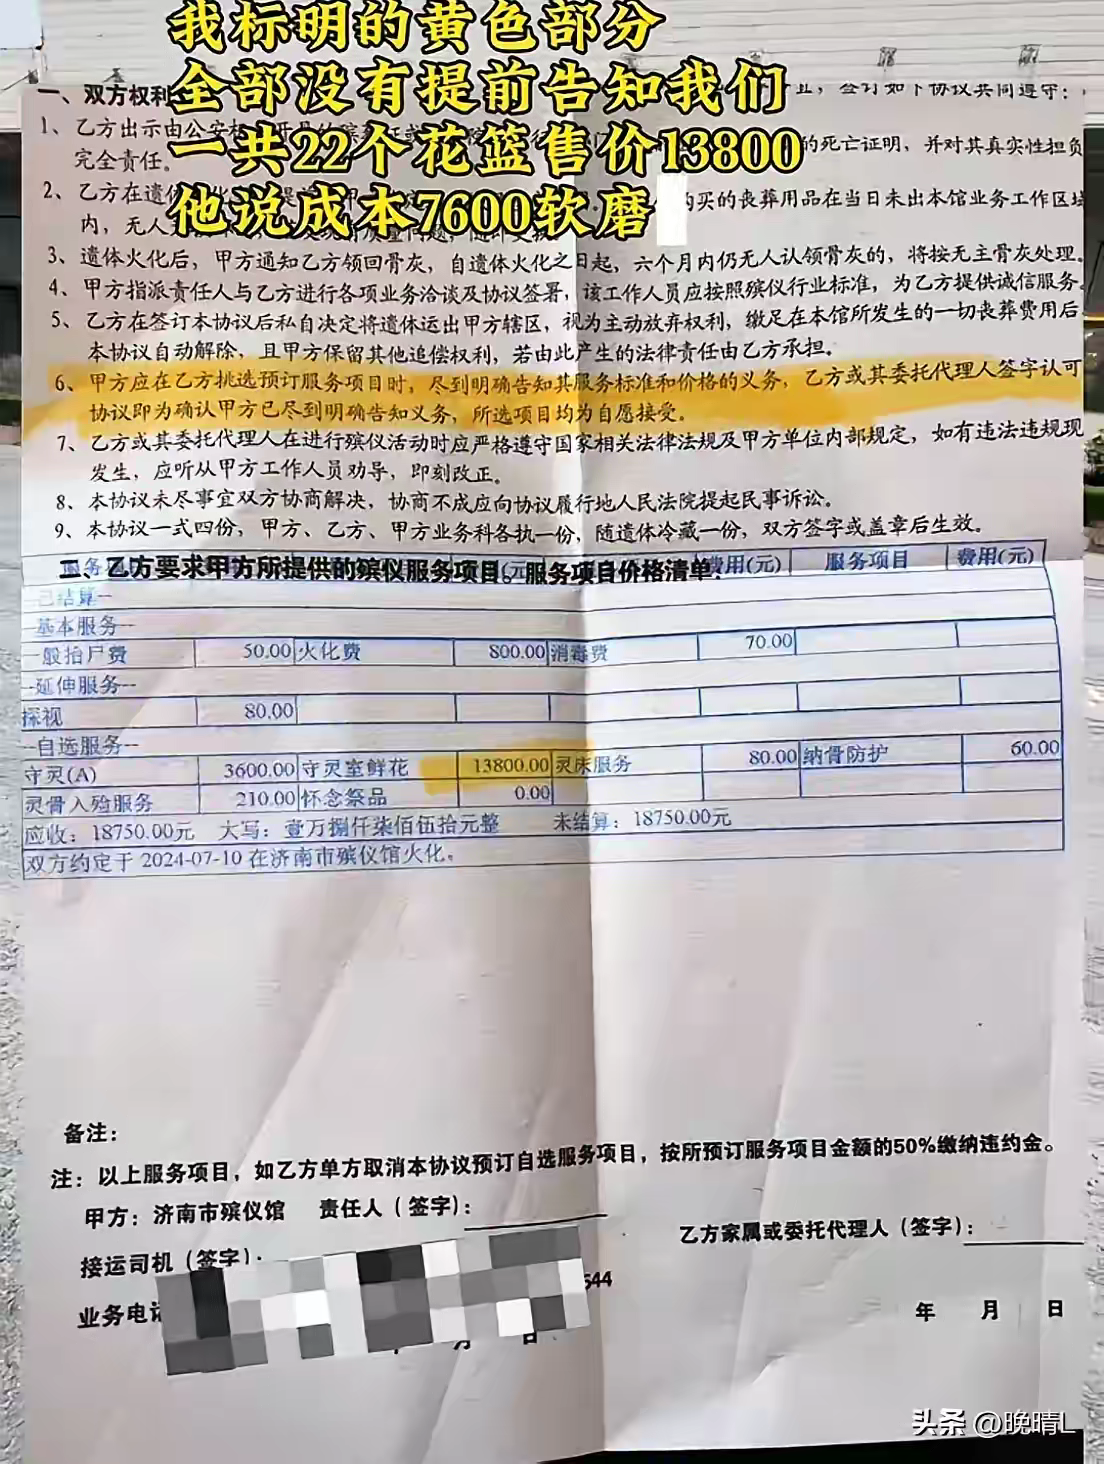 我标明的黄色部分
全部没有提前告知我们
一共22个花篮售价13800
他说成本7600软磨
一、双方权利
签订如下协议共同遵守：
1、乙方出示由公安机
的死亡证明，并对其真实性担负
完全责任。
2、乙方在遗体
购买的丧葬用品在当日未出本馆业务工作区域
内，无人
3、遗体火化后，甲方通知乙方领回骨灰，自遗体火化之日起，六个月内仍无人认领骨灰的，将按无主骨灰处理。
4、甲方指派责任人与乙方进行各项业务洽谈及协议签署，该工作人员应按照殡仪行业标准，为乙方提供诚信服务。
5、乙方在签订本协议后私自决定将遗体运出甲方辖区，视为主动放弃权利，缴足在本馆所发生的一切丧葬费用后
本协议自动解除，且甲方保留其他追偿权利，若由此产生的法律责任由乙方承担。
6、甲方应在乙方挑选预订服务项目时，尽到明确告知其服务标准和价格的义务，乙方或其委托代理人签字认可
协议即为确认甲方已尽到明确告知义务，所选项目均为自愿接受。
7、乙方或其委托代理人在进行殡仪活动时应严格遵守国家相关法律法规及甲方单位内部规定，如有违法违规现
发生，应听从甲方工作人员劝导，即刻改正。
8、本协议未尽事宜双方协商解决，协商不成应向协议履行地人民法院提起民事诉讼。
9、本协议一式四份，甲方、乙方、甲方业务科各执一份，随遗体冷藏一份，双方签字或盖章后生效。
二、乙方要求甲方所提供的殡仪服务项目。服务项目价格清单：
费用(元) 服务项目 费用(元)
--已结算--
--基本服务--
一般抬尸费 50.00 火化费 800.00 消毒费 70.00
--延伸服务--
探视 80.00
--自选服务--
守灵(A) 3600.00 守灵室鲜花 13800.00 灵床服务 80.00 纳骨防护 60.00
灵骨入殓服务 210.00 怀念祭品 0.00
应收：18750.00元 大写：壹万捌仟柒佰伍拾元整 未结算：18750.00元
双方约定于 2024-07-10 在济南市殡仪馆火化。
备注：
注：以上服务项目，如乙方单方取消本协议预订自选服务项目，按所预订服务项目金额的50%缴纳违约金。
甲方：济南市殡仪馆 责任人（签字）：
乙方家属或委托代理人（签字）：
接运司机（签字）：
业务电话
544
年 月 日
月 日
头条 @晚晴L